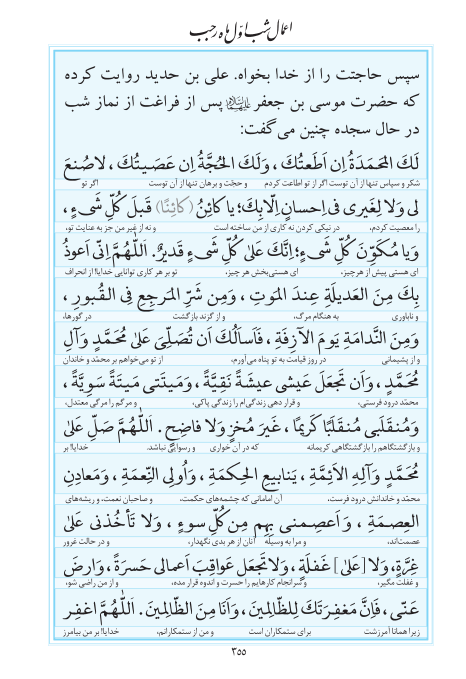 اعمال شب اوّل ماه رجب
سپس حاجتت را از خدا بخواه. علی بن حدید روایت کرده
که حضرت موسی بن جعفر علیه‌السلام پس از فراغت از نماز شب
در حال سجده چنین می‌گفت:
لَكَ المَحمَدَةُ اِن اَطَعتُكَ، وَلَكَ الحُجَّةُ اِن عَصَيتُكَ، لاصُنعَ
شکر و سپاس تنها از آن توست اگر از تو اطاعت کردم و حجّت و برهان تنها از آن توست اگر تو
لی وَلا لِغَیری فی اِحسانٍ اِلّا بِكَ؛ یا کائِنُ (کائِنًا) قَبلَ کُلِّ شَیءٍ،
را معصیت کردم، در نیکی کردن نه کاری از من ساخته است و نه از غیر من جز به عنایت تو،
وَیا مُکَوِّنَ کُلِّ شَیءٍ؛ اِنَّكَ عَلیٰ کُلِّ شَیءٍ قَدیرٌ. اَللّٰهُمَّ اِنّی اَعوذُ
ای هستی پیش از هرچیز، ای هستی‌بخش هر چیز، تو بر هر کاری توانایی خدایا! از انحراف
بِكَ مِنَ العَدیلَةِ عِندَ المَوتِ، وَمِن شَرِّ المَرجِعِ فِی القُبورِ،
و ناباوری به هنگام مرگ، و از گزند بازگشت در گورها،
وَمِنَ النَّدامَةِ یَومَ الآزِفَةِ، فَاَسأَلُكَ اَن تُصَلِّیَ عَلیٰ مُحَمَّدٍ وَآلِ
و از پشیمانی در روز قیامت به تو پناه می‌آورم، از تو می‌خواهم بر محمّد و خاندان
مُحَمَّدٍ، وَاَن تَجعَلَ عَیشی عیشَةً نَقِیَّةً، وَمَیتَتی مَیتَةً سَوِیَّةً،
محمّد درود فرستی، و قرار دهی زندگی‌ام را زندگی پاکی، و مرگم را مرگی معتدل،
وَمُنقَلَبی مُنقَلَبًا کَریمًا، غَیرَ مُخزٍ وَلا فاضِحٍ. اَللّٰهُمَّ صَلِّ عَلیٰ
و بازگشتگاهم را بازگشتگاهی کریمانه که در آن خواری و رسوایی نباشد. خدایا! بر
مُحَمَّدٍ وَآلِهِ الاَئِمَّةِ، یَنابیعِ الحِکمَةِ، وَاُولِی النِّعمَةِ، وَمَعادِنِ
محمّد و خاندانش درود فرست، آن امامانی که چشمه‌های حکمت، و صاحبان نعمت، و ریشه‌های
العِصمَةِ، وَاَعصِمنی بِهِم مِن کُلِّ سوءٍ، وَلا تَأخُذنی عَلیٰ
عصمت‌اند، و مرا به وسیلۀ آنان از هر بدی نگهدار، و در حالت غرور
غِرَّةٍ، وَلا [عَلیٰ] غَفلَةٍ، وَلا تَجعَل عَواقِبَ اَعمالی حَسرَةً، وَارضَ
و غفلت مگیر، و سرانجام کارهایم را حسرت و اندوه قرار مده، و از من راضی شو،
عَنّی، فَاِنَّ مَغفِرَتَكَ لِلظّالِمینَ، وَاَنَا مِنَ الظّالِمینَ. اَللّٰهُمَّ اغفِر
زیرا همانا آمرزشت برای ستمکاران است و من از ستمکارانم، خدایا! بر من بیامرز
۳۵۵